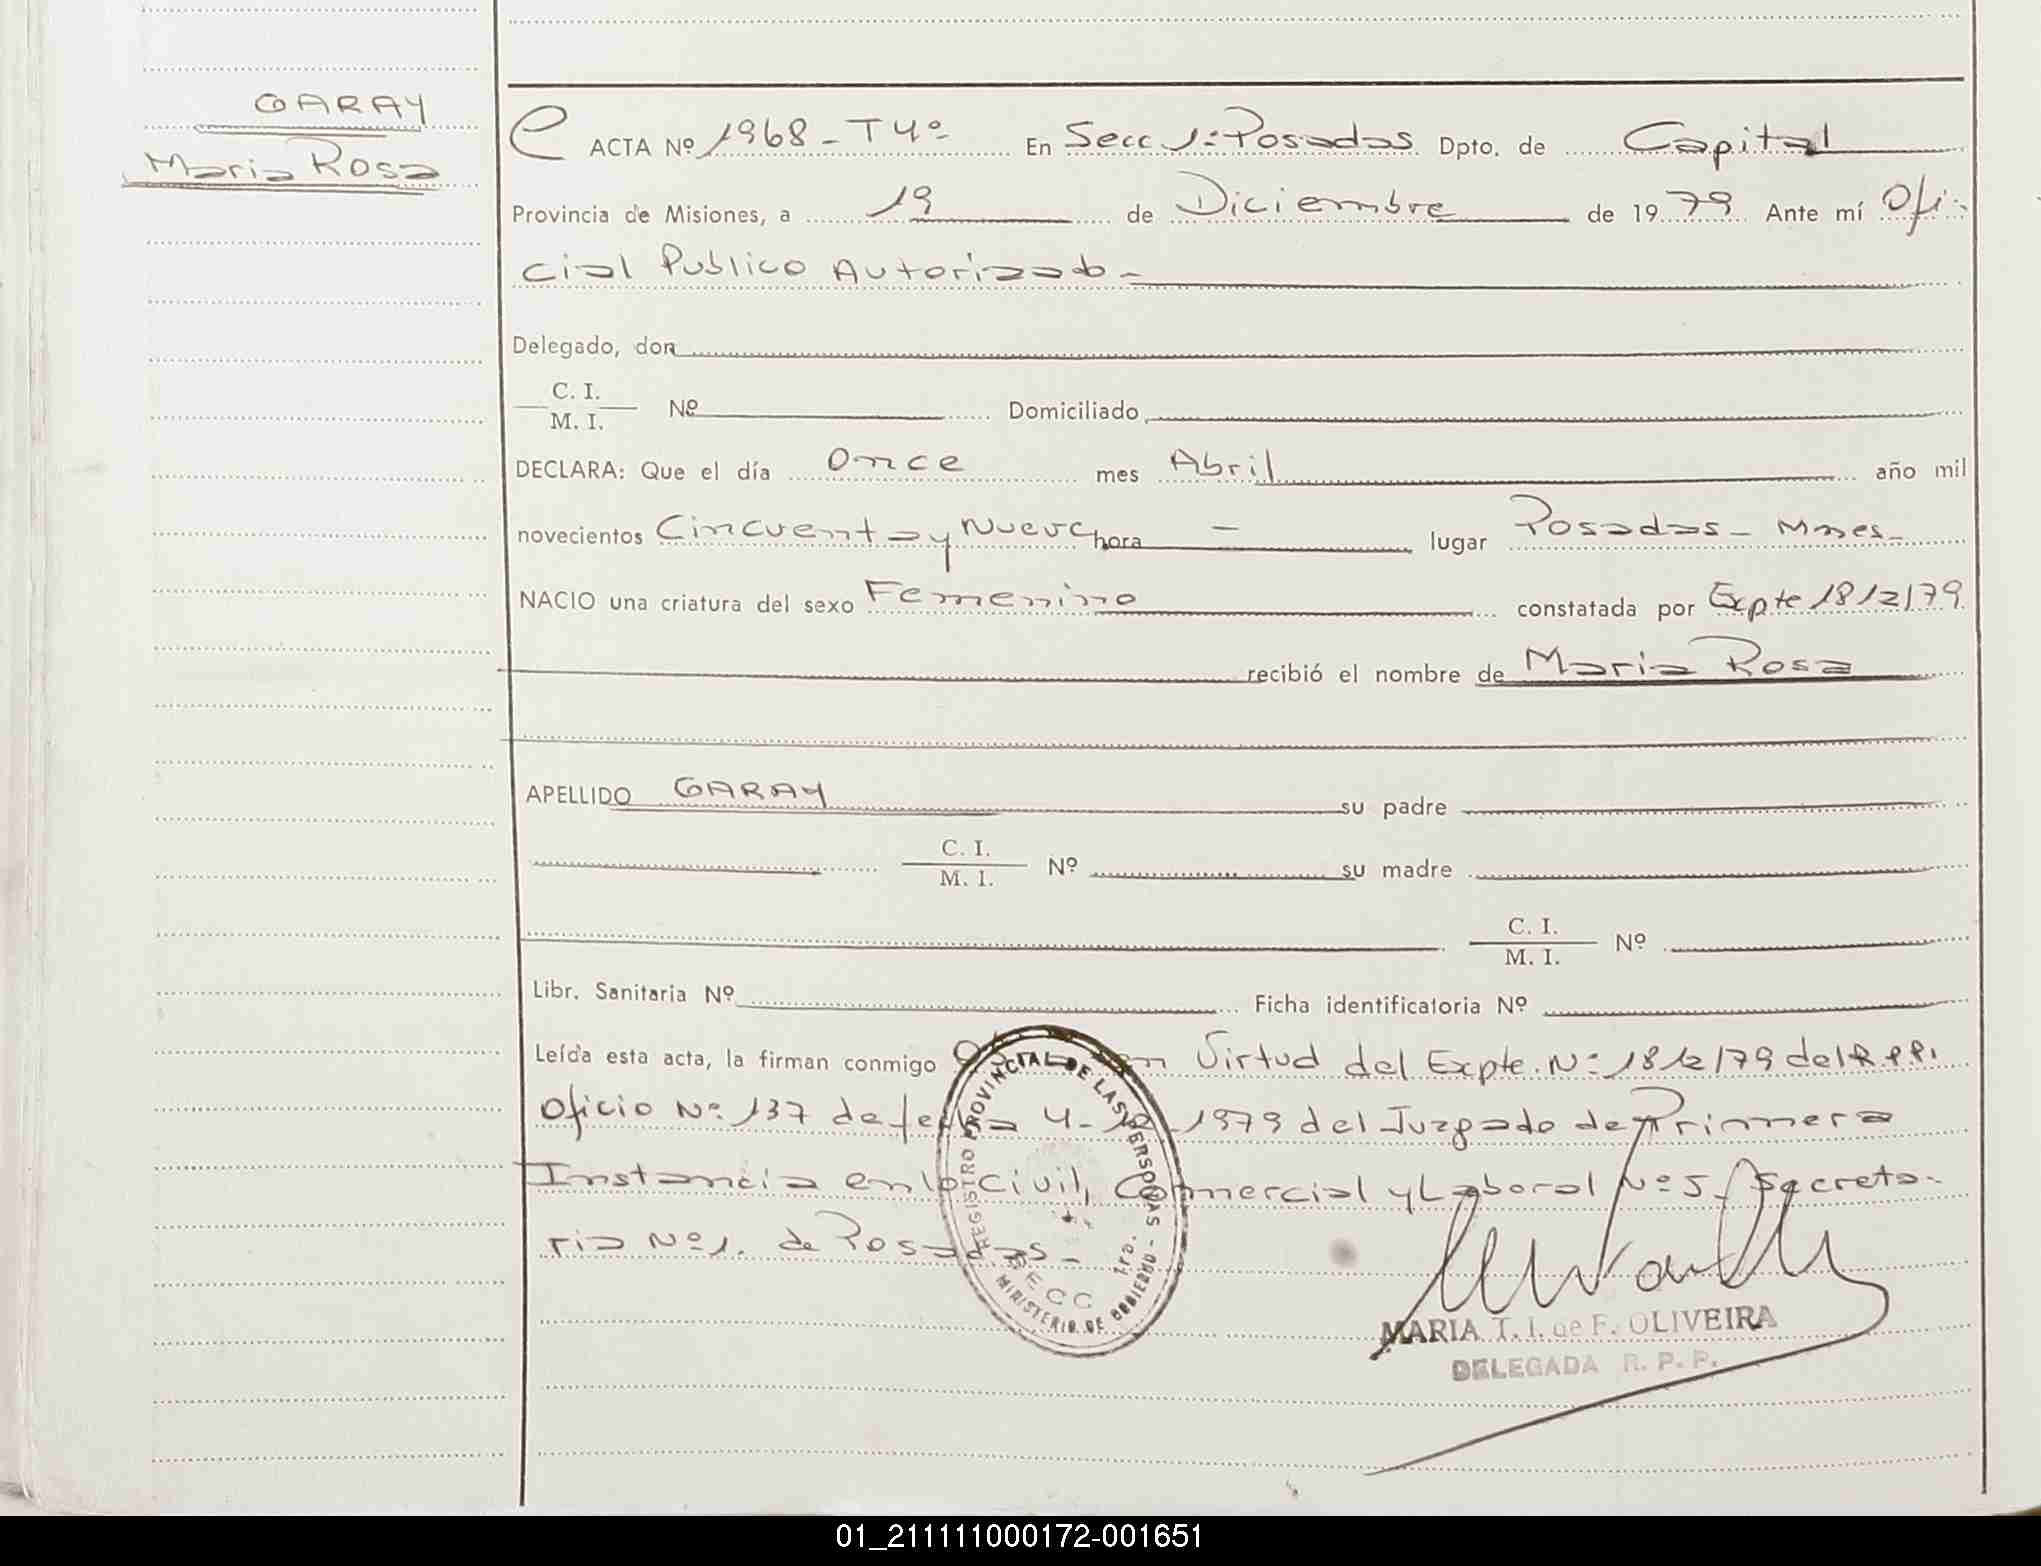 GARAY
Maria Rosa
ACTA Nº 1968 - T4º En Secc 1: Posadas Dpto. de Capital
Provincia de Misiones, a 19 de Diciembre de 1979 Ante mí Ofi-
cial Publico Autorizado -
Delegado, don
C. I.
M. I. Nº Domiciliado
DECLARA: Que el día Once mes Abril año mil
novecientos Cincuenta y Nueve hora - lugar Posadas - Mnes -
NACIO una criatura del sexo Femenino constatada por Expte 1812/79
recibió el nombre de Maria Rosa
APELLIDO GARAY su padre
C. I.
M. I. Nº su madre
C. I.
M. I. Nº
Libr. Sanitaria Nº Ficha identificatoria Nº
Leída esta acta, la firman conmigo en Virtud del Expte. Nº 1812/79 del R.P.P.
Oficio Nº 137 de fecha 4-12-1979 del Juzgado de Primera
Instancia en lo Civil, Comercial y Laboral Nº 5, Secreta-
ria Nº 1. de Posadas -
REGISTRO PROVINCIAL DE LAS PERSONAS
SECC 1ra.
MINISTERIO DE GOBIERNO
MARIA T. I. de F. OLIVEIRA
DELEGADA R. P. P.
01_211111000172-001651